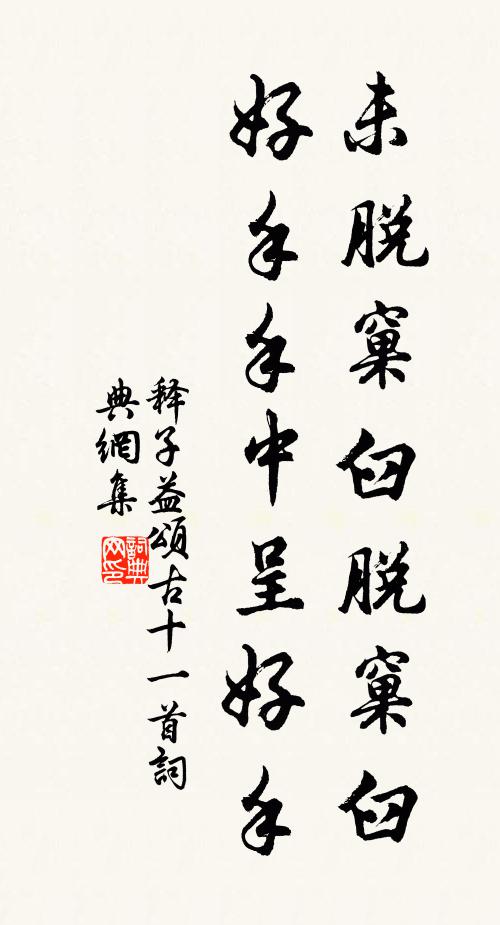 未脱窠臼脱窠臼
好手手中呈好手
释子益頌古十一首詞
典網集
詞典网印